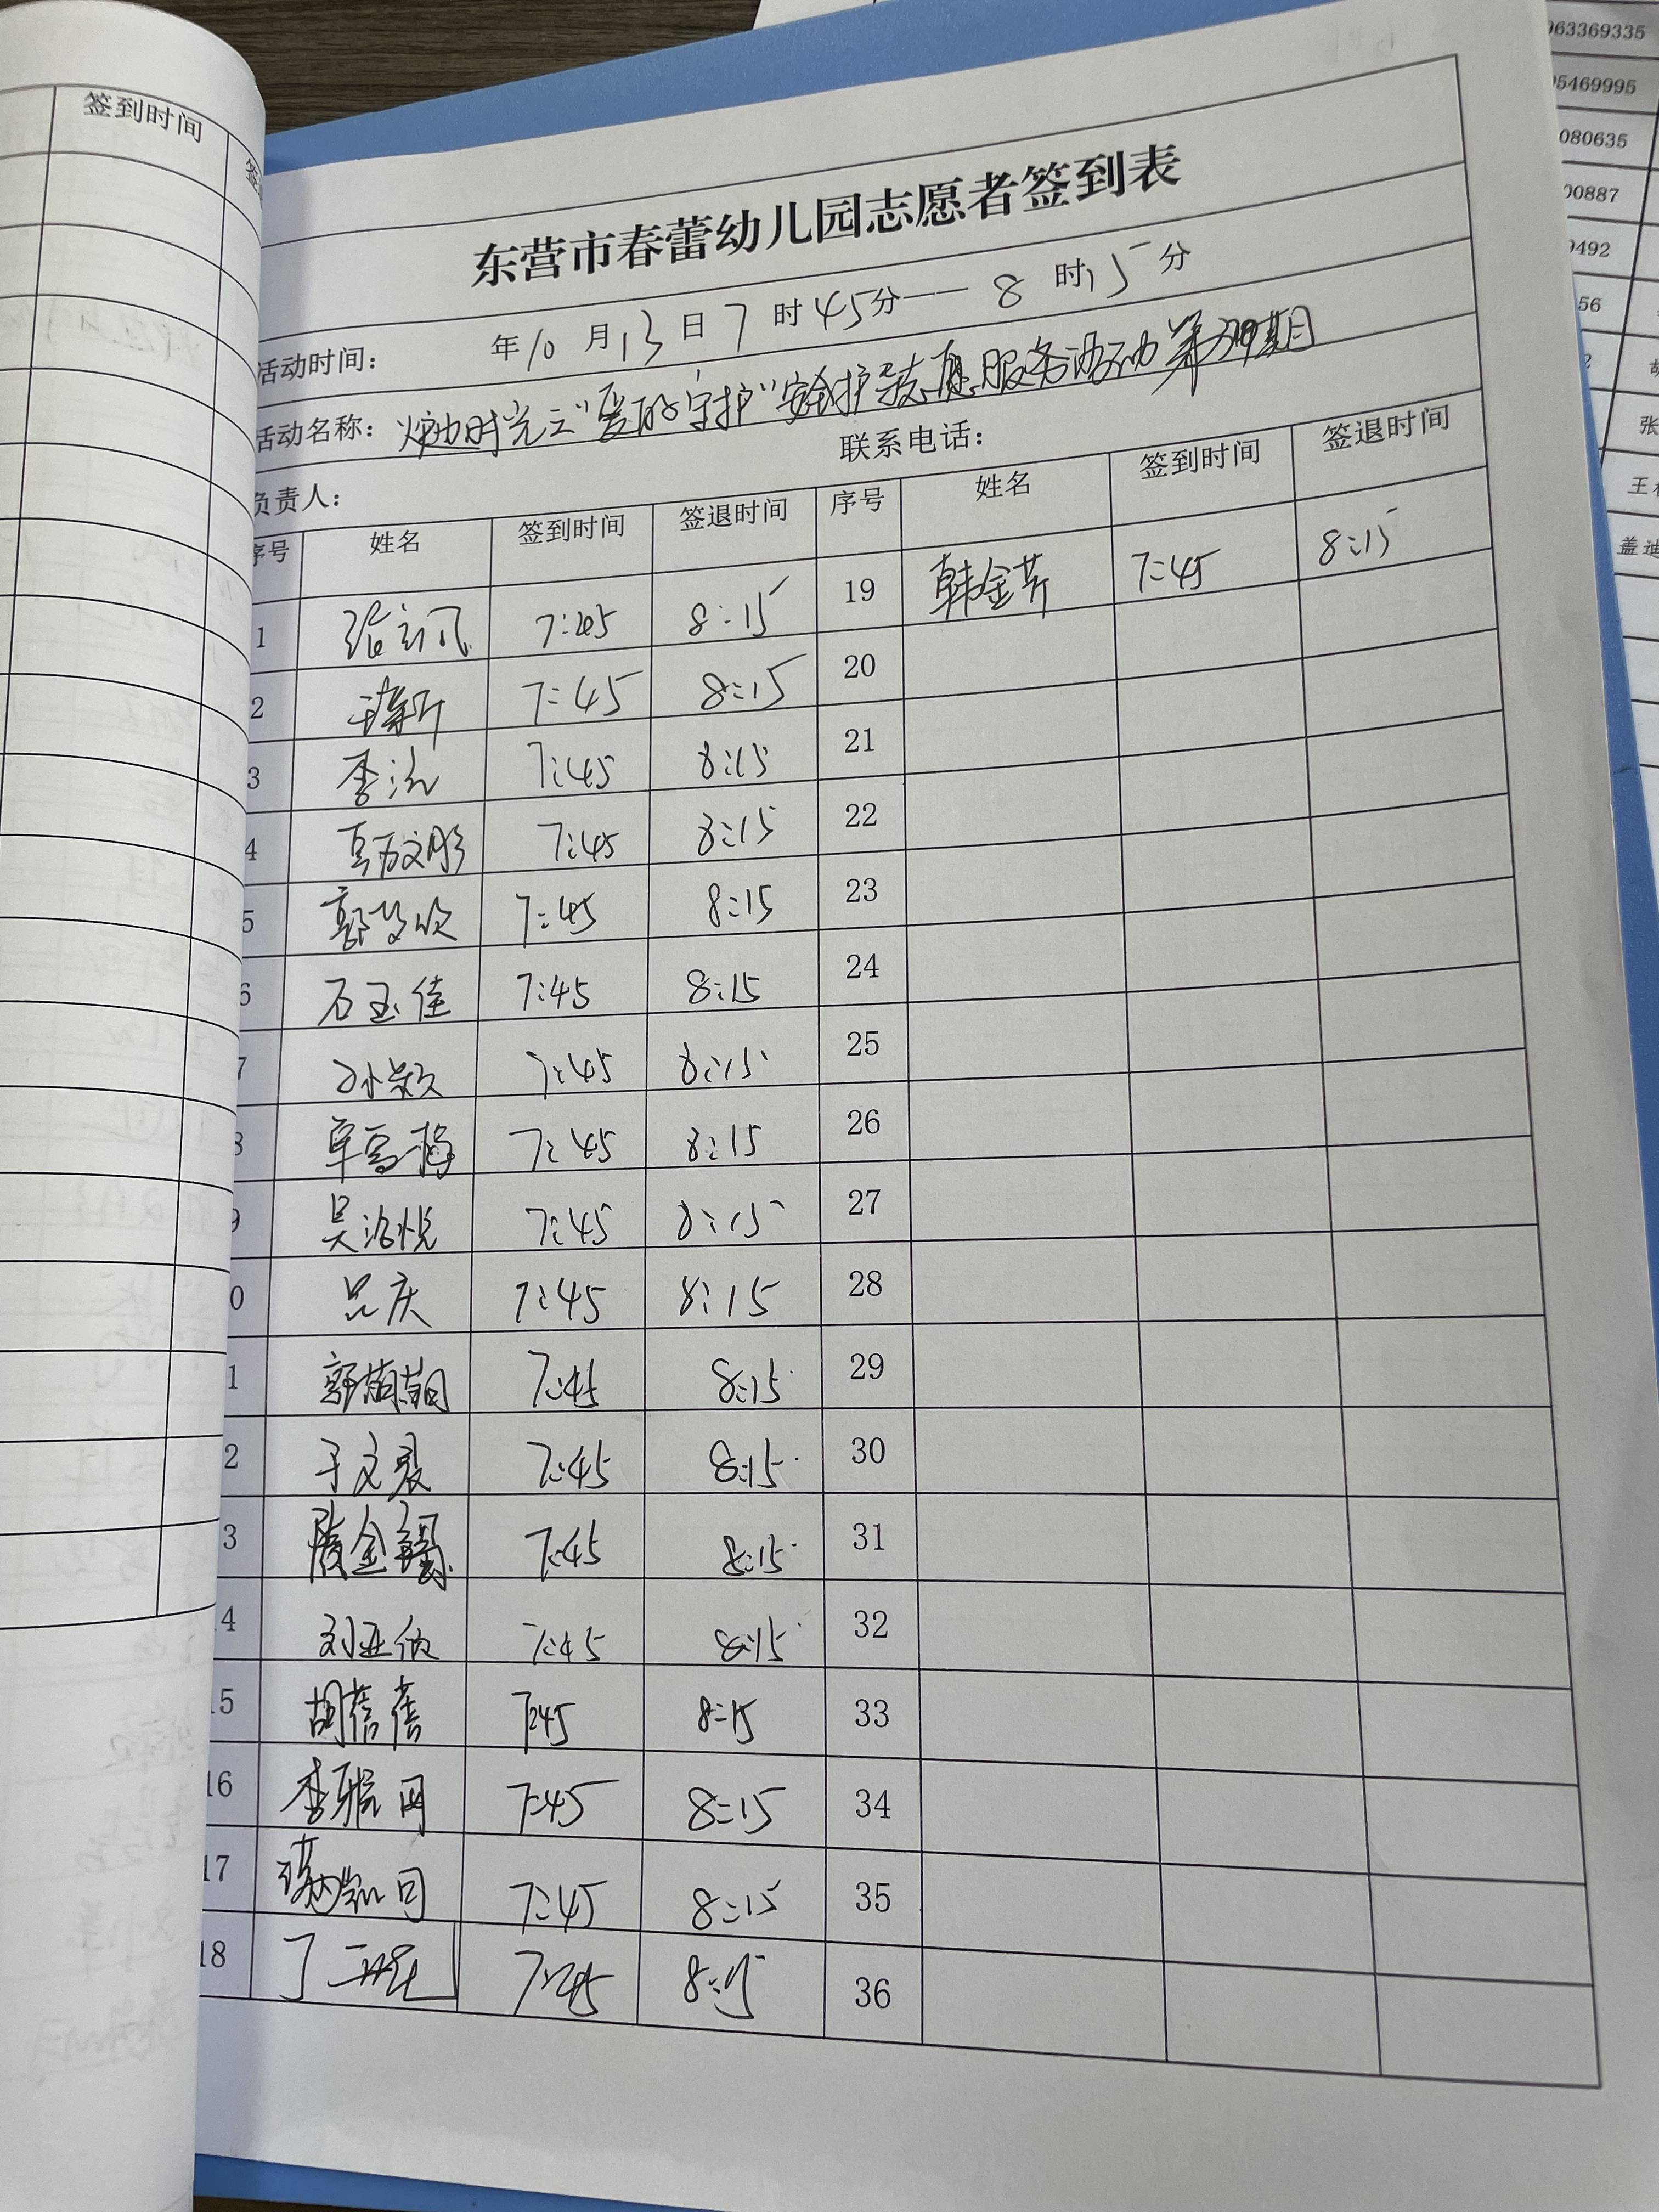 签到时间
东营市春蕾幼儿园志愿者签到表
活动时间: 年10月13日7时45分——8时15分
活动名称: 时光之"爱的守护"安全护导志愿服务活动第 期
负责人: 联系电话:
序号 姓名 签到时间 签退时间 序号 姓名 签到时间 签退时间
1 7:45 8:15 19 韩金芹 7:45 8:15
2 7:45 8:15 20
3 李 7:45 8:15 21
4 7:45 8:15 22
5 郭 7:45 8:15 23
6 石玉佳 7:45 8:15 24
7 孙颖 7:45 8:15 25
8 7:45 8:15 26
9 吴洛悦 7:45 8:15 27
0 吕庆 7:45 8:15 28
1 郭萌萌 7:45 8:15 29
2 于文 7:45 8:15 30
3 金 7:45 8:15 31
14 刘亚 7:45 8:15 32
15 胡蓓蓓 7:45 8:15 33
16 李 7:45 8:15 34
17 7:45 8:15 35
18 丁 7:45 8:15 36
963369335
05469995
080635
00887
0492
56
2
张
王
盖迪